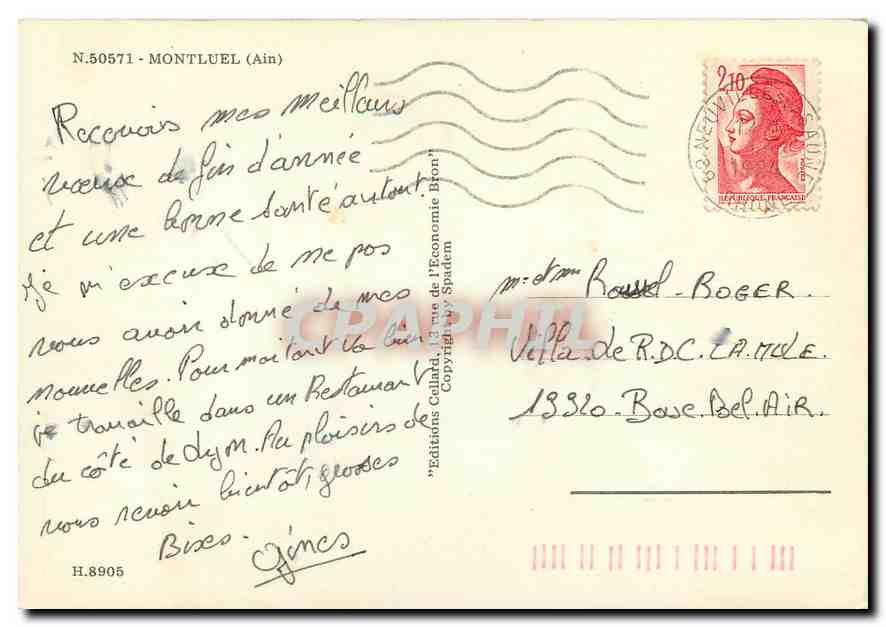 N.50571 - MONTLUEL (Ain)
Recevois mes meilleurs
vœux de fin d'année
et une bonne santé autout.
Je m'excuse de ne pas
vous avoir donné de mes
nouvelles. Pour moi tout va bien
je travaille dans un Restaurant
du côté de Lyon. Au plaisirs de
vous revoir bientôt, grosses
Bixes.
H.8905
"Editions Cellard, 13 rue de l'Economie Bron"
Copyright by Spadem
2,10
REPUBLIQUE FRANÇAISE
69 NEUVILLE S. SAONE
RHONE
mr et mme Roussel - ROGER.
Villa de R.D.C. LA MULE.
13320 - Bouc. Bel. AIR.
CPAPHIL